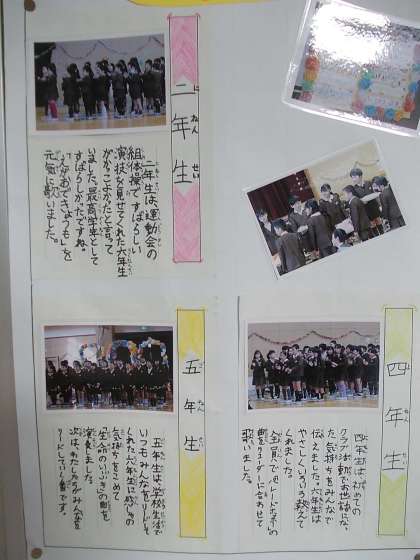 二年生
にねんせい
二年生は、運動会の
組体操ですばらしい
演技を見せてくれた六年生
がかっこよかったと言って
いました。最高学年として
すばらしかったですね。
「えがおできょうも」を
元気に歌いました。
四年生
四年生は初めての
クラブ活動でお世話になっ
た気持ちをみんなで
伝えました。六年生は
やさしくいろいろ教えて
くれました。
全員で
曲をリコーダーに合わせて
歌いました。
五年生
五年生は、学校生活で
いつもみんなをリードして
くれた六年生に感しゃの
気持ちをこめて
「生命のいぶき」の曲を
演奏しました。
次は、わたしたちがみんなを
リードしていく番です。